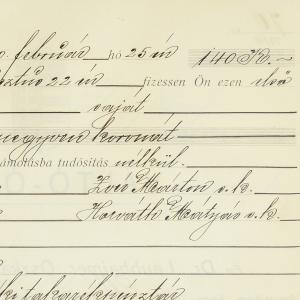 február hó 25 én 140 Kr.-
22 én fizessen Ön ezen első
saját
negyven koronát
számolásba tudósítás nélkül.
Márton s.k.
Horváth Mátyás s.k.
takarékpénztár